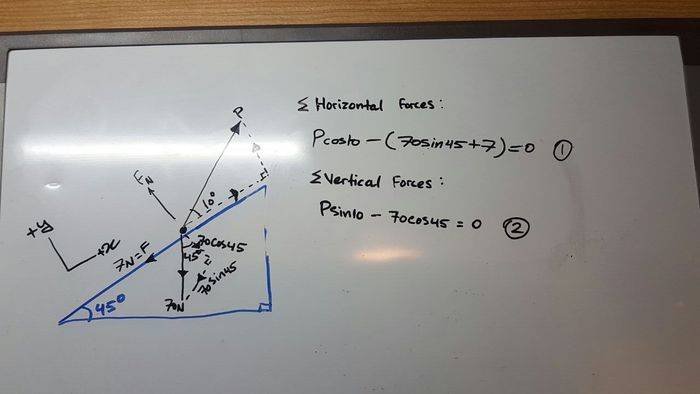 Σ Horizontal Forces:
Pcos10 - (70sin45 + 7) = 0 ①
Σ Vertical Forces:
Psin10 - 70cos45 = 0 ②
P
FN
10°
+y
+x
7N=F
70cos45
45°
70sin45
70N
45°